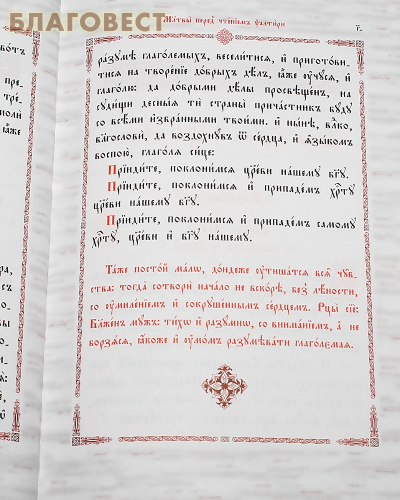 БЛАГОВЕСТ
Мл҃твы перед̾ чтенїемъ ѱалти́ри
г҃.
разумѣ́ глаго́лемыхъ, весели́тисѧ, и҆ пригото́ви-
тисѧ на творе́нїе до́брыхъ дѣ́лъ, ꙗ҆̀же ᲂу҆чу́сѧ, и҆
глаго́лю: да до́брыми дѣ́лы просвѣще́нъ, на
суди́щи десны́ѧ тѝ страны̀ прича́стникъ бу́ду
со всѣ́ми и҆збра́нными твои́ми. и҆ ны́нѣ, влⷣко,
благословѝ, да воздохну́въ ѿ се́рдца, и҆ ѧ҆зы́комъ
воспою̀, глаго́лѧ си́це:
Прїиди́те, поклони́мсѧ цр҃е́ви на́шему бг҃у.
Прїиди́те, поклони́мсѧ и҆ припаде́мъ хрⷭ҇ту̀
цр҃е́ви на́шему бг҃у.
Прїиди́те, поклони́мсѧ и҆ припаде́мъ самому̀
хрⷭ҇ту̀, цр҃е́ви и҆ бг҃у на́шему.
Та́же посто́й ма́лѡ, до́ндеже ᲂу҆тиша́тсѧ всѧ̑ чу̑в-
ства: тогда̀ сотворѝ нача́ло не вско́рѣ, без̾ лѣ́ности,
со ᲂу҆миле́нїемъ и҆ сокруше́ннымъ се́рдцемъ. Рцы̀ сїѐ:
Бл҃же́нъ мꙋ́жъ: ти́хѡ и҆ разу́мнѡ, со внима́нїемъ, а҆ не
борзѧ́сѧ, ꙗ҆́коже и҆ ᲂу҆мо́мъ разумѣва́ти глаго́лємаѧ.